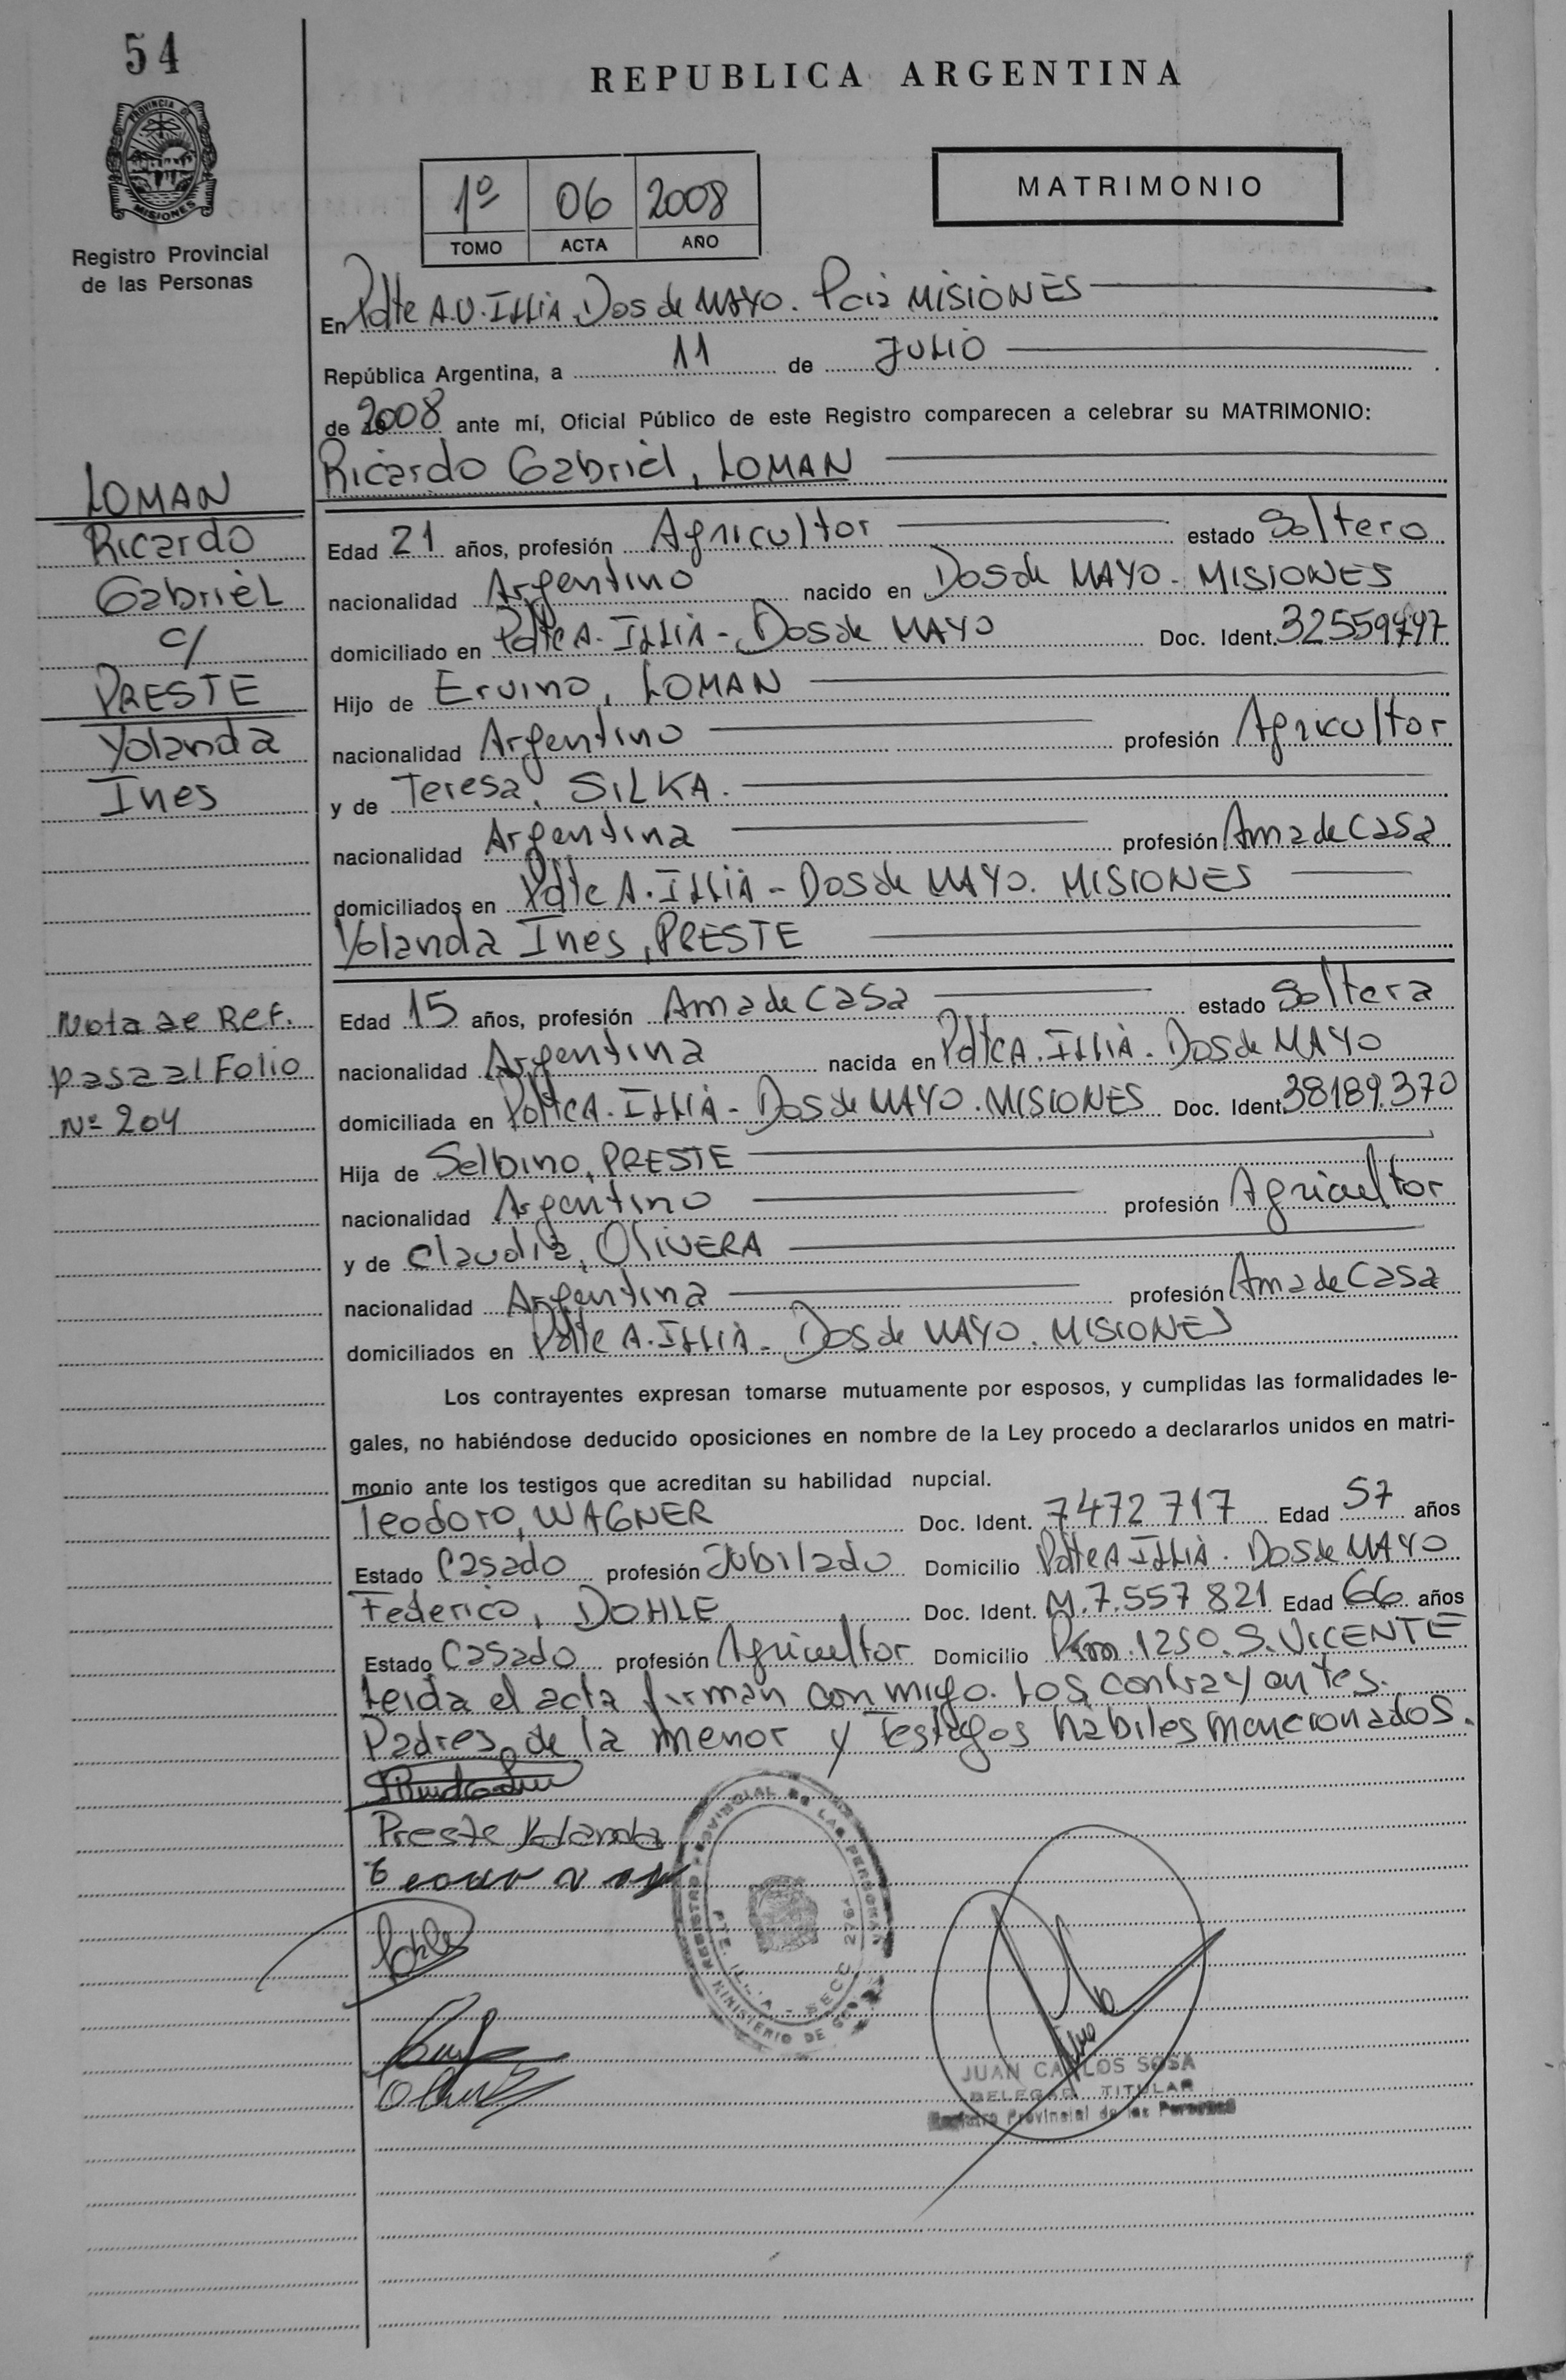 54
REPUBLICA ARGENTINA
PROVINCIA DE
MISIONES
Registro Provincial
de las Personas
1º 06 2008
TOMO ACTA AÑO
MATRIMONIO
En Pdte A.U. ILLIA Dos de MAYO. Pcia MISIONES
República Argentina, a 11 de JULIO
de 2008 ante mí, Oficial Público de este Registro comparecen a celebrar su MATRIMONIO:
Ricardo Gabriel, LOMAN
LOMAN
Ricardo
Gabriel
c/
PRESTE
Yolanda
Ines
Edad 21 años, profesión Agricultor estado Soltero
nacionalidad Argentino nacido en Dos de MAYO - MISIONES
domiciliado en Pdte A. ILLIA - Dos de MAYO Doc. Ident.
Hijo de Ervino, LOMAN
nacionalidad Argentino profesión Agricultor
y de Teresa, SILKA.
nacionalidad Argentina profesión Ama de Casa
domiciliados en Pdte A. ILLIA - Dos de MAYO. MISIONES
Yolanda Ines, PRESTE
Nota de Ref.
pasa al Folio
Nº 204
Edad 15 años, profesión Ama de Casa estado Soltera
nacionalidad Argentina nacida en Pdte A. ILLIA - Dos de MAYO
domiciliada en Pdte A. ILLIA - Dos de MAYO. MISIONES Doc. Ident. 38189.370
Hija de Selbino, PRESTE
nacionalidad Argentino profesión Agricultor
y de Claudia, OLIVERA
nacionalidad Argentina profesión Ama de Casa
domiciliados en Pdte A. ILLIA - Dos de MAYO. MISIONES
Los contrayentes expresan tomarse mutuamente por esposos, y cumplidas las formalidades le-
gales, no habiéndose deducido oposiciones en nombre de la Ley procedo a declararlos unidos en matri-
monio ante los testigos que acreditan su habilidad nupcial.
Teodoro, WAGNER Doc. Ident. 7472717 Edad 57 años
Estado Casado profesión Jubilado Domicilio Pdte A ILLIA - Dos de MAYO
Federico, DOHLE Doc. Ident. M.7.557821 Edad 66 años
Estado Casado profesión Agricultor Domicilio Km.1250. S. VICENTE
Leida el acta firman con migo. Los contrayentes.
Padres de la menor y Testigos habiles mencionados.
Preste Yolanda
REGISTRO PROVINCIAL DE LAS PERSONAS
PTE. ILLIA - SECC 2791
MINISTERIO DE
JUAN CARLOS SOSA
DELEGAD TITULAR
Registro Provincial de las Personas